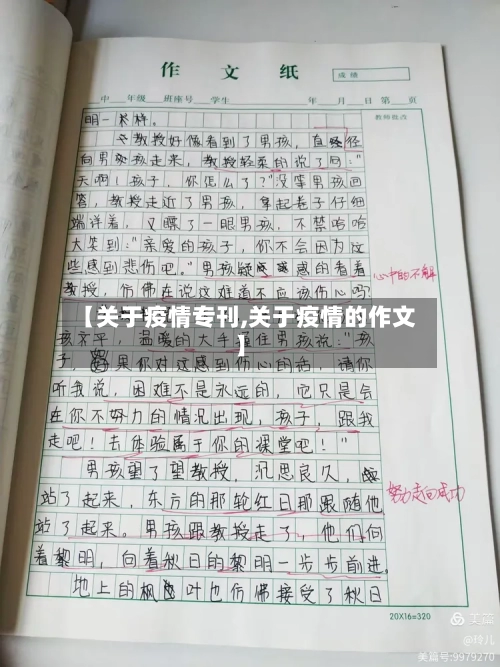 作 文 纸
成 绩
中 年级 班座号 学生 年 月 日 第 页
教师批改
明一样。
教授好像看到了男孩，直径
向男孩走来，教授轻柔的说了句："
天啊！孩子，你怎么了？"没等男孩回
答，教授走近了男孩，拿起卷子仔细
端详着，又瞟了一眼男孩，不禁哈哈
大笑到："亲爱的孩子，你不会因为这
些感到悲伤吧。"男孩疑惑感的看着
心中的不解
教授，仿佛在说这难道不应该伤心吗
【关于疫情专刊,关于疫情的作文
】
孩说："孩
子，如果你对这感到伤心的话，请你
听我说，困难不是永远的，它只是会
在你不努力的情况出现，孩子，跟我
走吧！去体验属于你的课堂吧！"
男孩望了望教授，沉思良久，
努力走向成功
站了起来，东方的那轮红日那跟随他
站了起来。男孩跟教授走了，他们向
着黎明，向着秋日的黎明一步步前进。
地上的枫叶也仿佛接受了秋日
20X16=320
美篇
@玲儿
美篇号:9979270